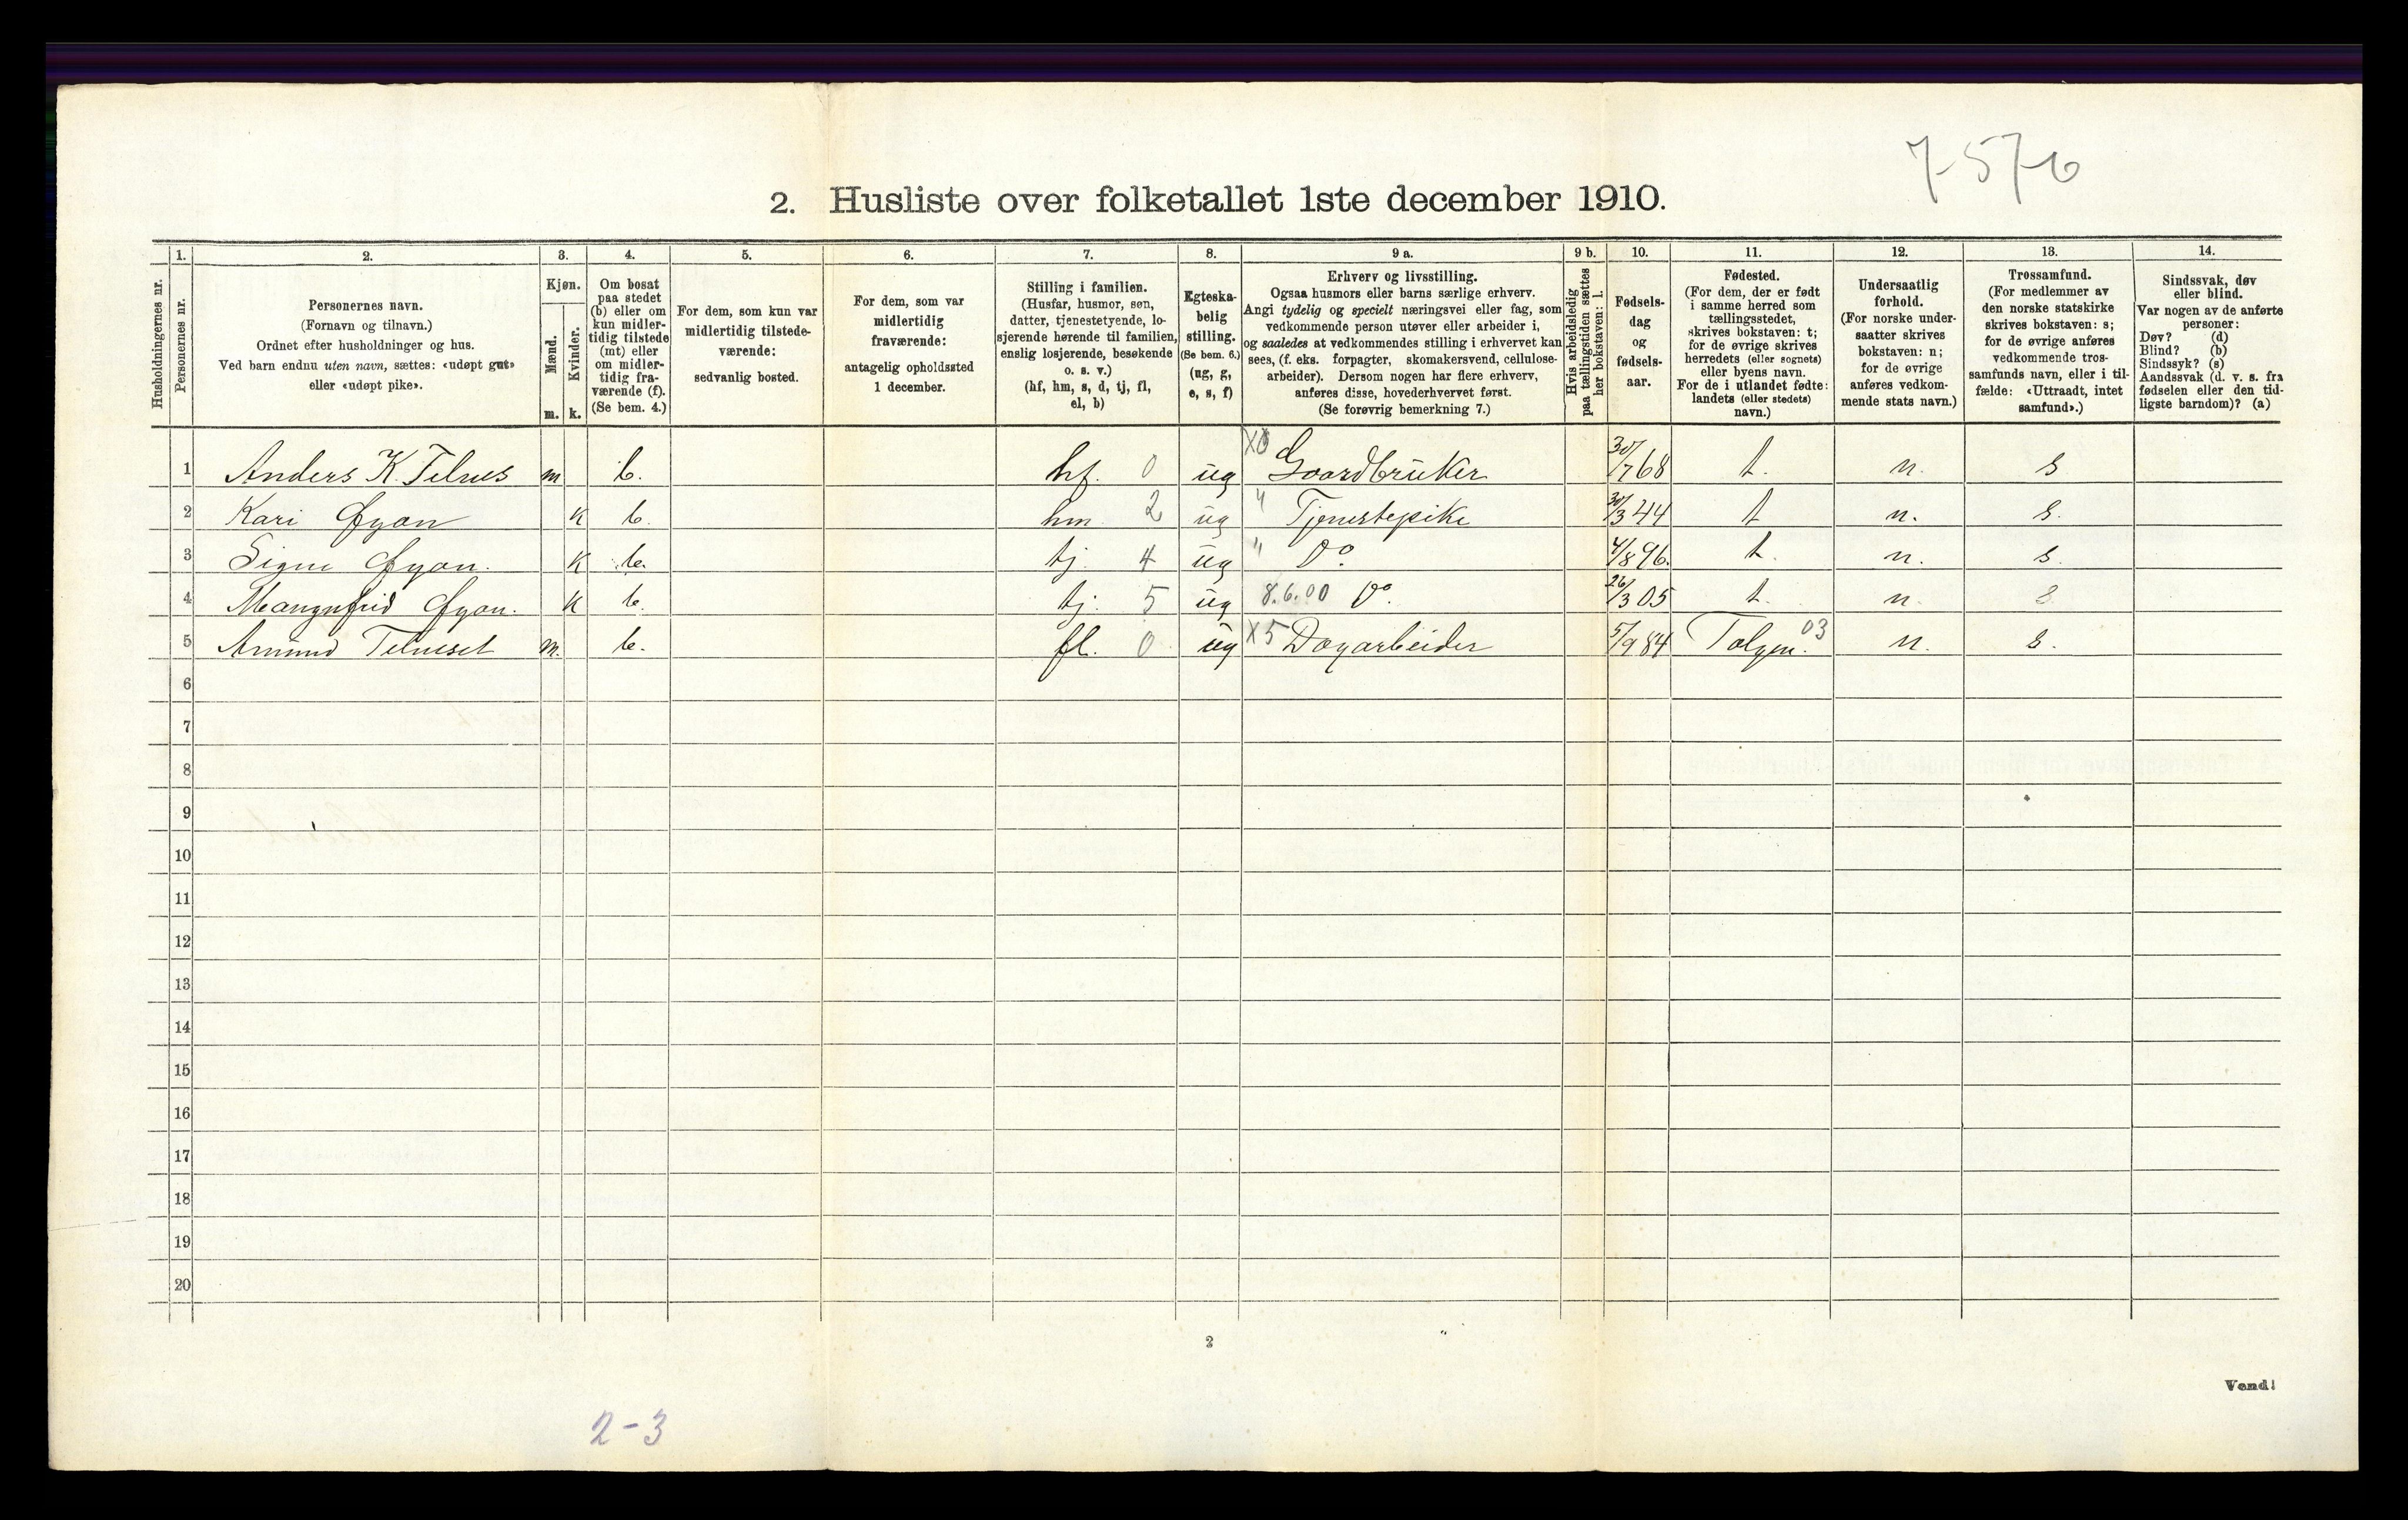 7-57-6
2. Husliste over folketallet 1ste december 1910.
Husholdningernes nr.
1. Personernes nr.
2.
Personernes navn.
(Fornavn og tilnavn.)
Ordnet efter husholdninger og hus.
Ved barn endnu uten navn, sættes: «udøpt gut»
eller «udøpt pike».
3.
Kjøn.
Mænd. m.
Kvinder. k.
4.
Om bosat
paa stedet
(b) eller om
kun midler-
tidig tilstede
(mt) eller
om midler-
tidig fra-
værende (f).
(Se bem. 4.)
5.
For dem, som kun var
midlertidig tilstede-
værende:
sedvanlig bosted.
6.
For dem, som var
midlertidig
fraværende:
antagelig opholdssted
1 december.
7.
Stilling i familien.
(Husfar, husmor, søn,
datter, tjenestetyende, lo-
sjerende hørende til familien,
enslig losjerende, besøkende
o. s. v.)
(hf, hm, s, d, tj, fl,
el, b)
8.
Egteska-
belig
stilling.
(Se bem. 6.)
(ug, g,
e, s, f)
9 a.
Erhverv og livsstilling.
Ogsaa husmors eller barns særlige erhverv.
Angi tydelig og specielt næringsvei eller fag, som
vedkommende person utøver eller arbeider i,
og saaledes at vedkommendes stilling i erhvervet kan
sees, (f. eks. forpagter, skomakersvend, cellulose-
arbeider). Dersom nogen har flere erhverv,
anføres disse, hovederhvervet først.
(Se forøvrig bemerkning 7.)
9 b.
Hvis arbeidsledig
paa tællingstiden sættes
her bokstaven: l.
10.
Fødsels-
dag
og
fødsels-
aar.
11.
Fødested.
(For dem, der er født
i samme herred som
tællingsstedet,
skrives bokstaven: t;
for de øvrige skrives
herredets (eller sognets)
eller byens navn.
For de i utlandet fødte:
landets (eller stedets)
navn.)
12.
Undersaatlig
forhold.
(For norske under-
saatter skrives
bokstaven: n;
for de øvrige
anføres vedkom-
mende stats navn.)
13.
Trossamfund.
(For medlemmer av
den norske statskirke
skrives bokstaven: s;
for de øvrige anføres
vedkommende tros-
samfunds navn, eller i til-
fælde: «Uttraadt, intet
samfund».)
14.
Sindssvak, døv
eller blind.
Var nogen av de anførte
personer:
Døv? (d)
Blind? (b)
Sindssyk? (s)
Aandssvak (d. v. s. fra
fødselen eller den tid-
ligste barndom)? (a)
1 Anders K. Telnes m b. hf. 0 ug X0 Gaardbruker 30/7 68 t. n. s
2 Kari k b. hm 2 ug " Tjenestepike 30/3 44 t n. s.
3 Signe k b. tj. 4 ug " Do. 4/8 96. t. n. s.
4 k b. tj. 5 ug 8.6.00 Do. 26/3 05 t. n. s
5 Amund Telneset m. b. fl. 0 ug X5 Dagarbeider 5/9 84 Tolgen. 03 n. s.
6
7
8
9
10
11
12
13
14
15
16
17
18
19
20
2
Vend!
2-3